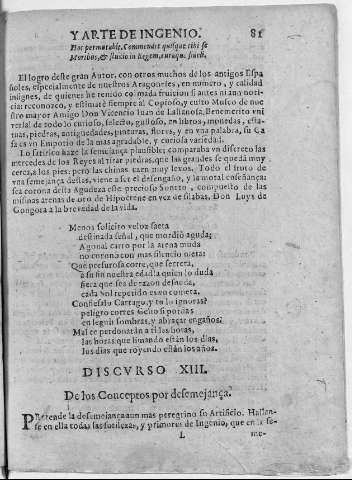 Y ARTE DE INGENIO. 81
Hoc permutabile. Commendet quisque tibi se
Moribus, &
El logro deste gran Autor, con otros muchos de los antigos Espa
ñoles, especialmente de nuestros Aragoneses, en numero, y calidad
insignes, de quienes he tenido colmada fruicion si antes ni aun noti-
cia: reconozco, y estimarè siempre al Copioso, y culto Museo de nues-
tro mayor Amigo Don Vicencio Iuan de Lastanosa, Benemerito vni
versal de todo lo curioso, selecto, gustoso, en libros, monedas, esta-
tuas, piedras, antiguedades, pinturas, flores, y en vna palabra, su Ca
sa es vn Emporio de la mas agradable, y curiosa variedad.
Lo satirico haze la semejança plausible; comparaba vn discreto las
mercedes de los Reyes al tirar piedras, que las grandes se quedã muy
cerca, a los pies: pero las chicas caen muy lexos. Todo el fruto de
vna semejança destas, viene a ser el desengaño, y la moral enseñança:
sea corona desta Agudeza este precioso Soneto, compuesto de las
mismas arenas de oro de Hipocrene en vez de silabas. Don Luys de
Gongora a la brevedad de la vida.
Menos solicito veloz saeta
destinada señal, que mordiò aguda;
Agonal carro por la arena muda
no coronò con mas silencio meta:
Que presurosa corre, que secreta,
a su fin nuestra edad! a quien lo duda
fiera que sea de razon desnuda,
cada Sol repetido es vn cometa.
Confiesalo Cartago, y tu lo ignoras?
peligro corres si porfias
en seguir sombras, y abraçar engaños?
Mal te perdonarán a ti las horas,
las horas que limando están los dias,
los dias que royendo están los años.
DISCVRSO XIII.
De los Conceptos por desemejança.
PRetende la desemejança aun mas peregrino su Artificio. Hallan-
se en ella todas las sutilezas, y primores de Ingenio, que en la se-
L me-